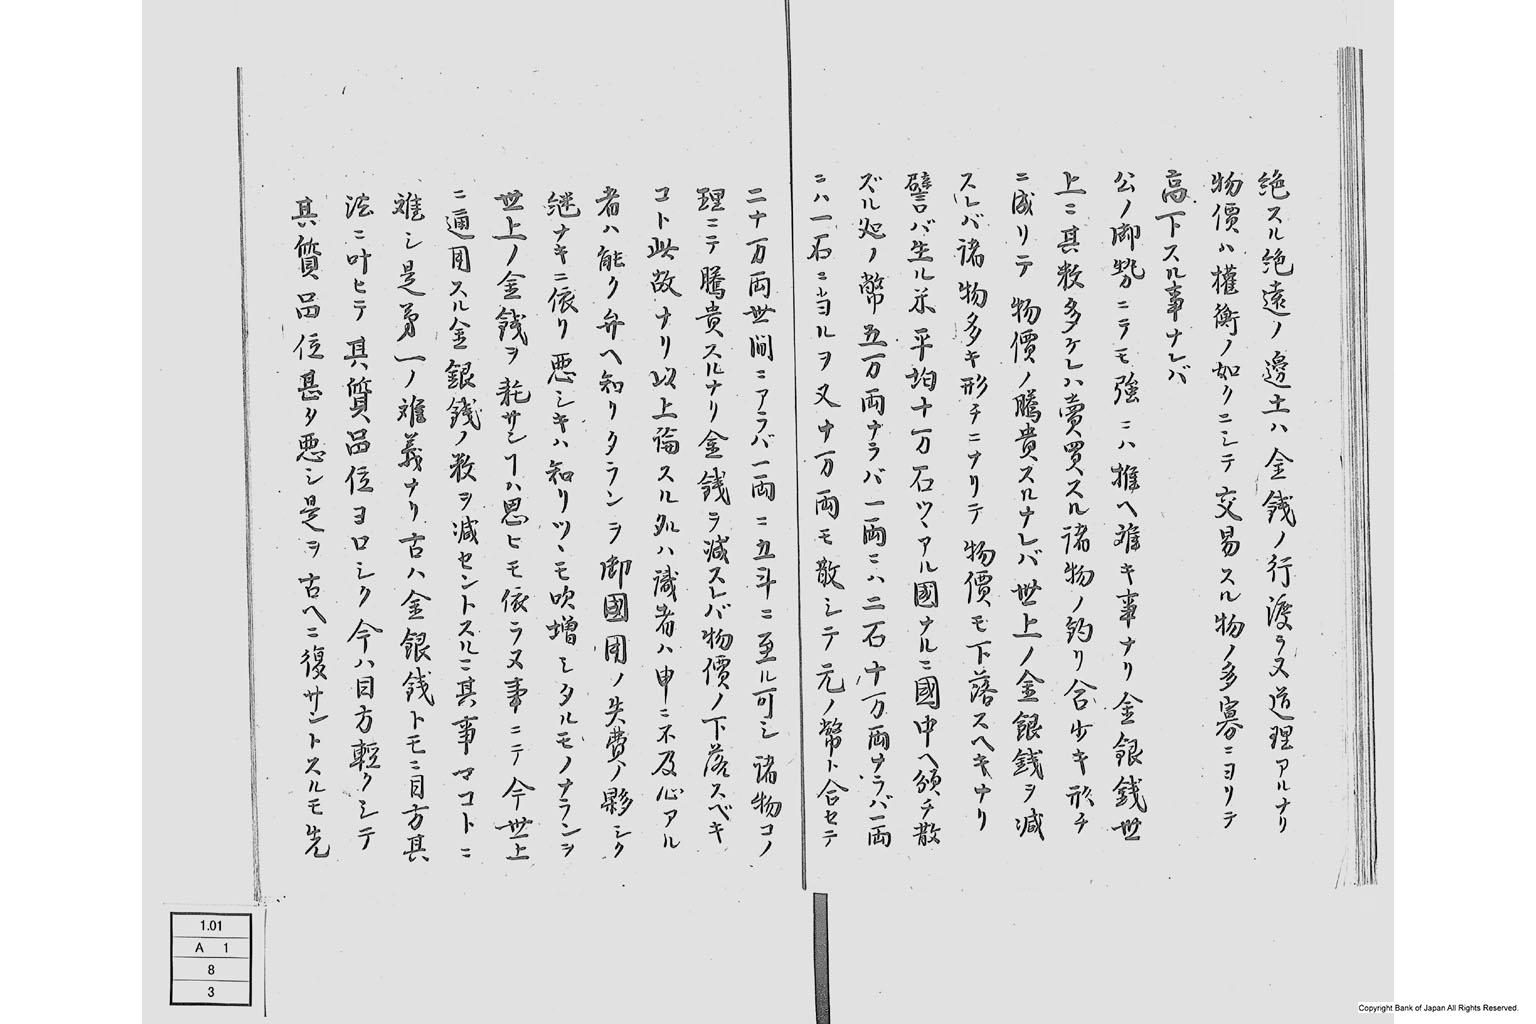 絶スル絶遠ノ邊土ハ金銭ノ行渡ラヌ道理アルナリ
物價ハ權衡ノ如クニシテ交易スル物ノ多寡ニヨリテ
高下スル事ナレバ
公ノ御勢ニテモ強ニハ推ヘ難キ事ナリ金銀銭世
上ニ其数多ケレハ賣買スル諸物ノ釣リ合少キ形チ
ニ成リテ物價ノ騰貴スルナレバ世上ノ金銀銭ヲ減
スレバ諸物多キ形チニナリテ物價モ下落スヘキナリ
譬ヘバ生ル米平均十万石ツヽアル國ナルニ國中ヘ頒チ散
ズル処ノ幣五万両ナラバ一両ニハ二石十万両ナラバ一両
ニハ一石ニ当ルヲ又十万両モ散シテ元ノ幣ト合セテ
二十万両世間ニアラバ一両ニ五斗ニ至ル可シ諸物コノ
理ニテ騰貴スルナリ金銭ヲ減スレバ物價ノ下落スベキ
コト此故ナリ以上論スル処ハ識者ハ申ニ不及心アル
者ハ能ク弁ヘ知リタランヲ御國用ノ失費ノ夥シク
継ナキニ依リ悪シキハ知リツヽモ吹増シタルモノナランヲ
世上ノ金銭ヲ耗サンヿハ思ヒモ依ラヌ事ニテ今世上
ニ通用スル金銀銭ノ数ヲ減セントスルニ其事マコトニ
難シ是第一ノ難義ナリ古ハ金銀銭トモニ目方其
法ニ叶ヒテ其質品位ヨロシク今ハ目方輕クシテ
其質品位甚タ悪シ是ヲ古ヘニ復サントスルモ先
1.01
A 1
8
3
Copyright Bank of Japan All Rights Reserved.